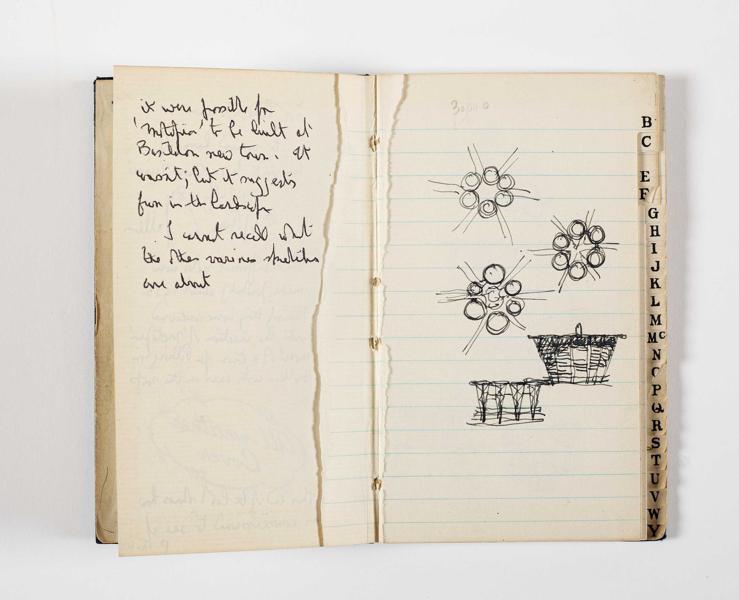 it were possible for
'Motopia' to be built at
Basildon new town. It
wasn't; but it suggests
fun in the landscape
I cannot recall what
the other various sketches
are about
B
C
E
F
G
H
I
J
K
L
M
Mc
N
O
P
Q
R
S
T
U
V
W
Y